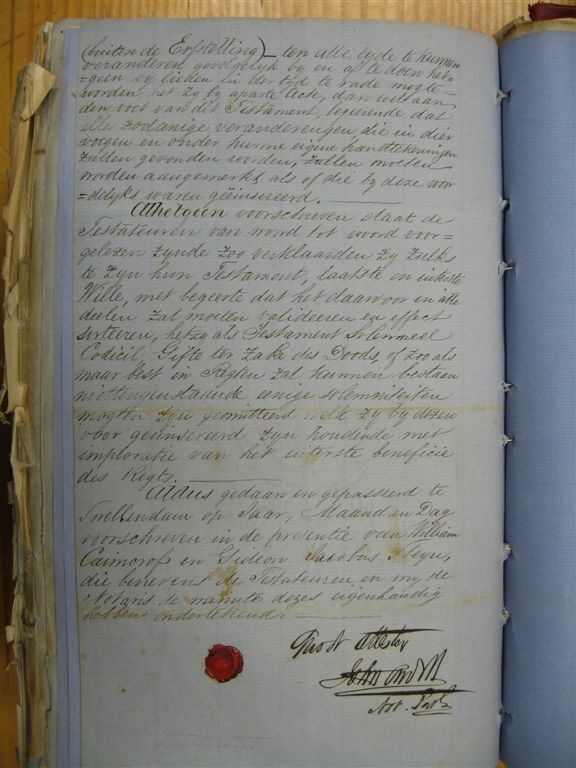 (buiten de Erfstelling) – ten alle tyde te kunnen
veranderen gevolgelyk by en af te doen het
=geen zy lieden in der tijd te rade mogte
worden, het zy by aparte Acte, dan wel aan
den voet van dit Testament, begeerende dat
alle zodanige veranderengen die in dier
voegen en onder hunne eigene handtekeningen
zullen gevonden worden, zullen moeten
worden aangemerkt als of die by deze woor
=delyks waren geïnsereerd.
Althetgeen voorschreven staat de
Testateuren van woord tot woord voor=
gelezen zynde zoo verklaarden zy zulks
te zyn hun Testament, laatste en uiterste
Wille, met begeerte dat het daarvoor in alle
deelen zal moeten valideeren en effect
sorteeren, het zy als Testament Solemneel
Codicil, Gifte ter zake des Doods, of zoo als
maar best in Regten zal kunnen bestaan
niettengenstaande eenige solemniteiten
mogten zyn geomitteerd welk zy by dezen
voor geïnsereerd zyn houdende met
imploratie van het uiterste beneficie
des Regts.
Aldus gedaan en gepasseerd te
Swellendam op Jaar, Maand en Dag
voorschreven in de presentie van William
Cairncross en Gideon Jacobus Steyn,
die benevens de Testateuren en my, de
Notaris de minute dezes eigenhandig
hebben onderteekend.
Quod Attestor
John
Not. Publ.